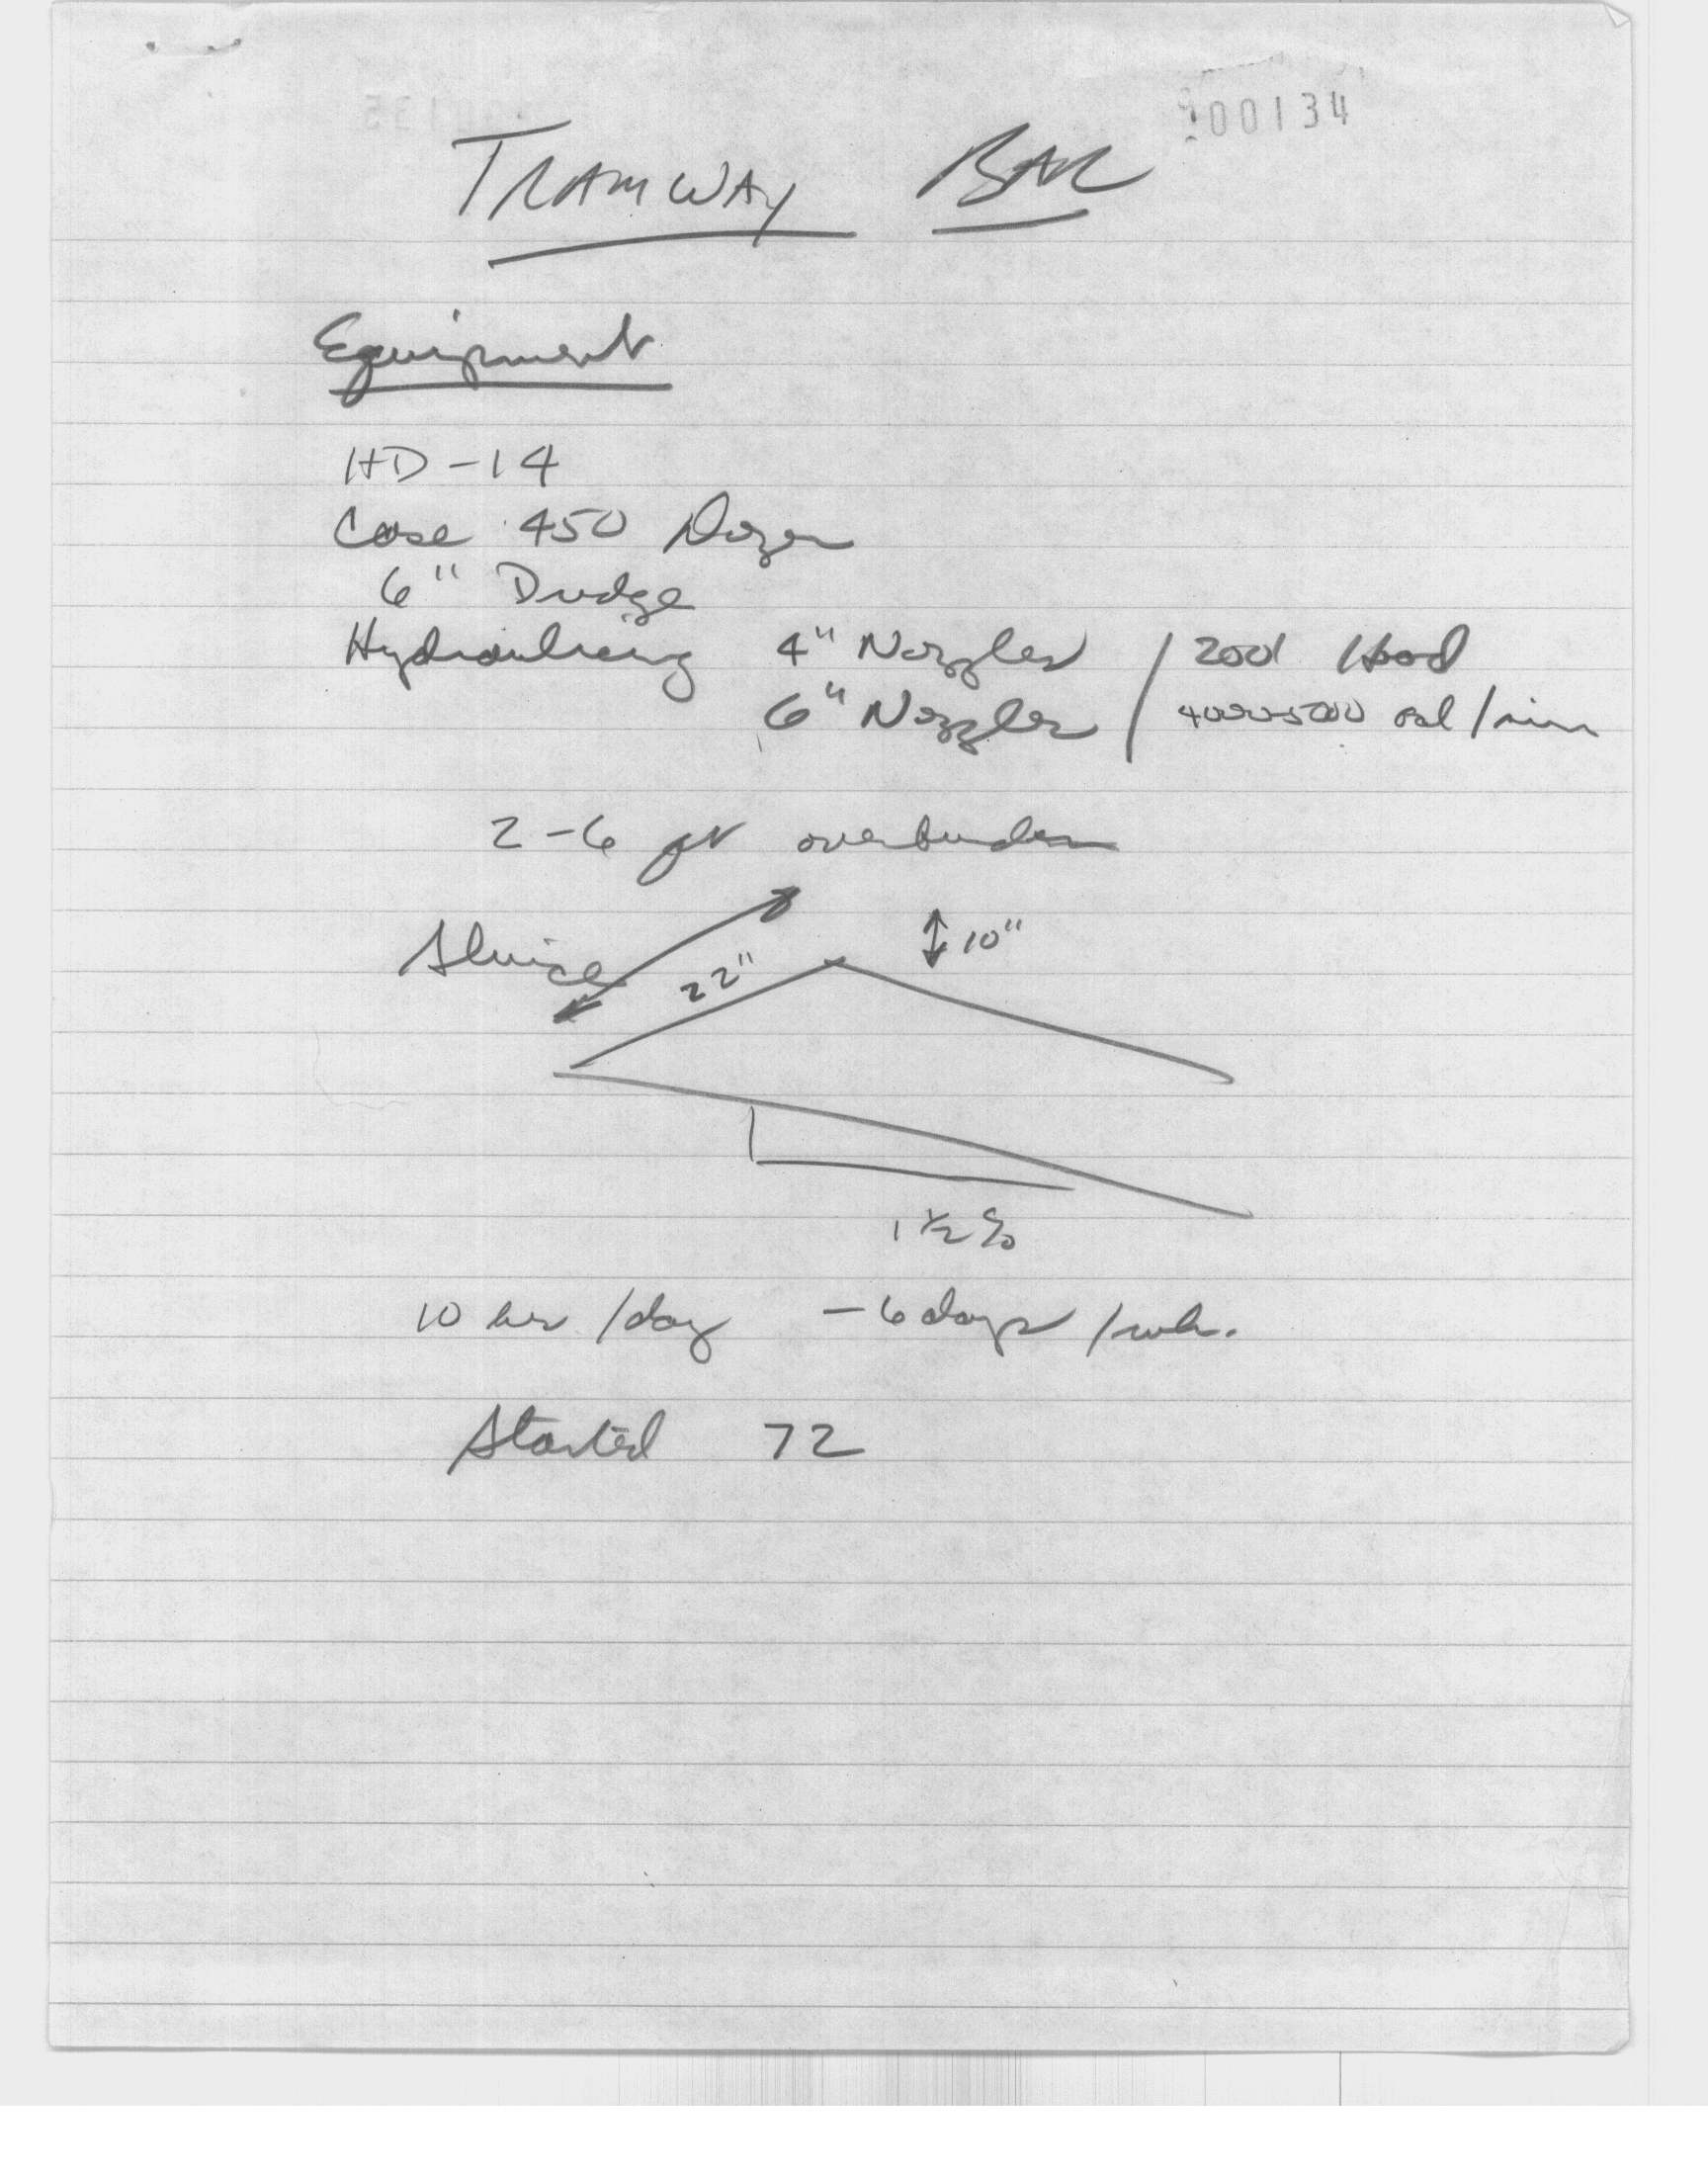 000134
TRAMWAY BAR
Equipment
HD-14
Case 450 Dozer
6" Dredge
Hydraulicing 4" Nozzles / 200' Head
6" Nozzles / 4000-5000 gal/min
2-6 ft overburden
Sluice 22" 10"
1 1/2 %
10 hr/day - 6 days/wk.
Started 72